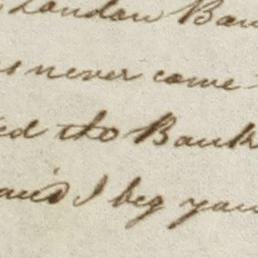 London Ban
never come
ed the Bank
and I beg you